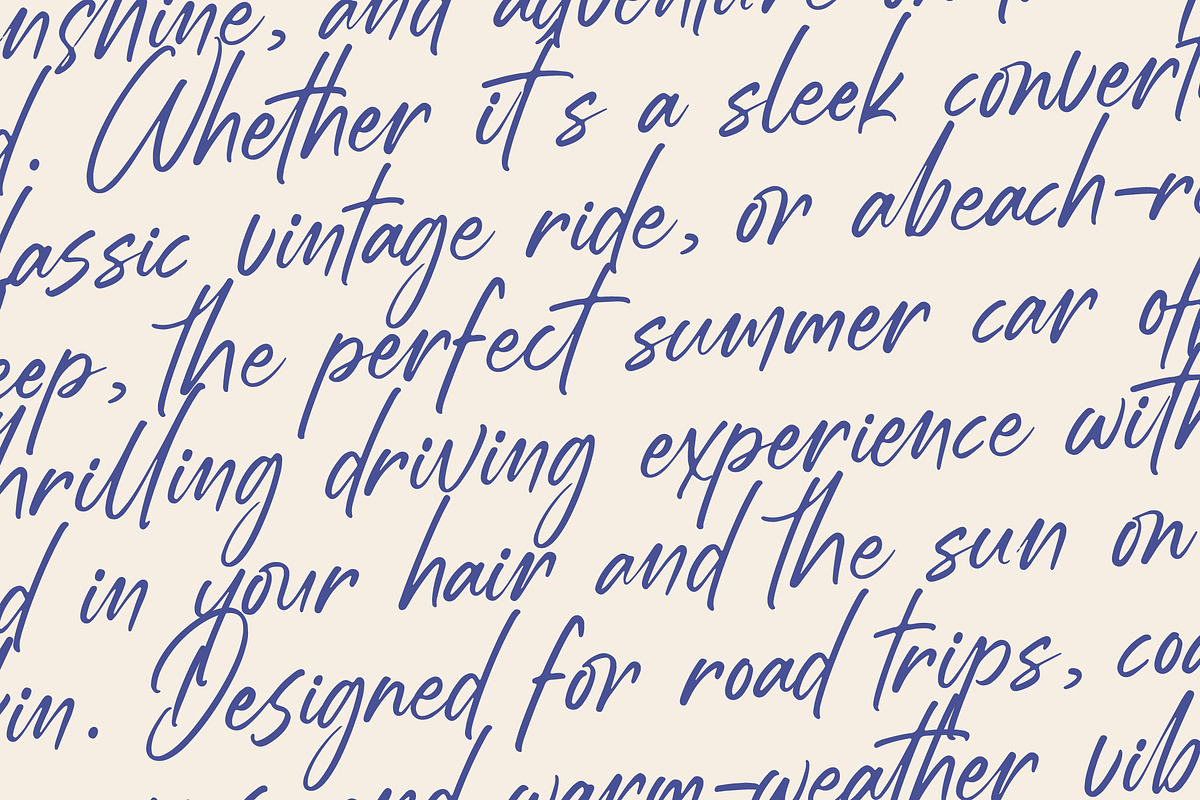 nshine, and adventure
d. Whether it's a sleek convert
lassic vintage ride, or abeach-r
eep, the perfect summer car of
hrilling driving experience with
d in your hair and the sun on
kin. Designed for road trips, coa
and warm-weather vib